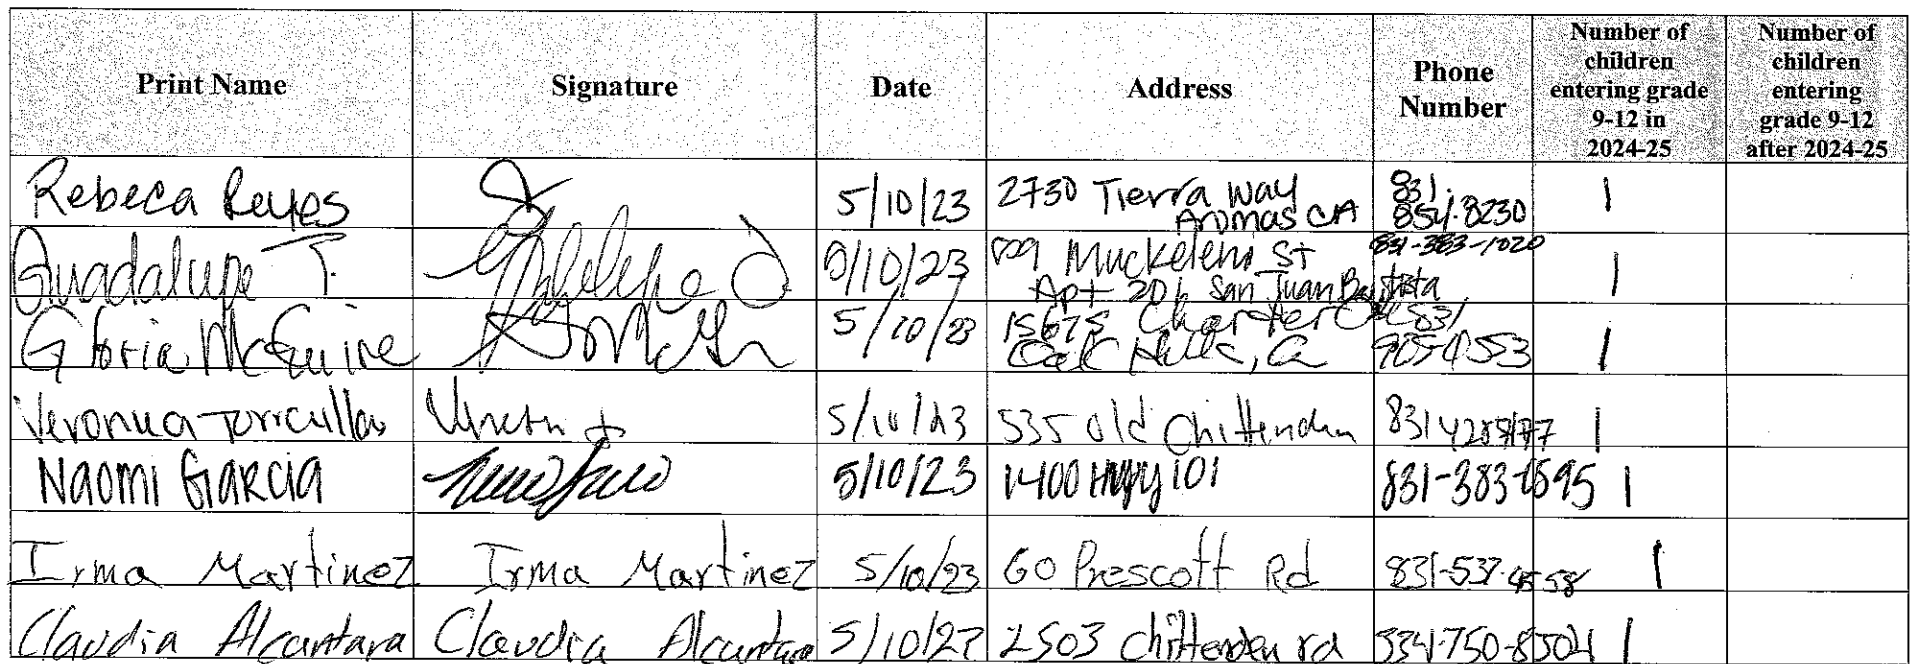 Print Name Signature Date Address Phone Number Number of children entering grade 9-12 in 2024-25 Number of children entering grade 9-12 after 2024-25
Rebeca Reyes 5/10/23 2730 Tierra Way Aromas CA 831. 854.8230 1
Guadalupe T. 5/10/23 St Apt 20 San Juan Bautista 831-383-1020 1
Gloria McGuire 5/10/23 15675 Charter Oak Oak Hills, CA 831 1
Veronica Torricullas 5/10/23 535 old Chittenden 831 1
Naomi Garcia 5/10/23 1400 Hwy 101 831-383- 1
Irma Martinez Irma Martinez 5/10/23 60 Prescott Rd 831-537-4558 1
Claudia Alcantara Claudia Alcantara 5/10/23 2503 Chittenden rd 1